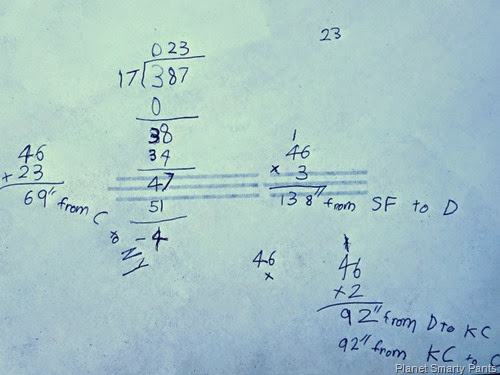 23
023
17)387
0
38
34
47
51
-4
46
+23
69" from C
1
46
× 3
138" from SF to D
46
×
46
×2
92" from D to KC
92" from KC to C
Planet Smarty Pants